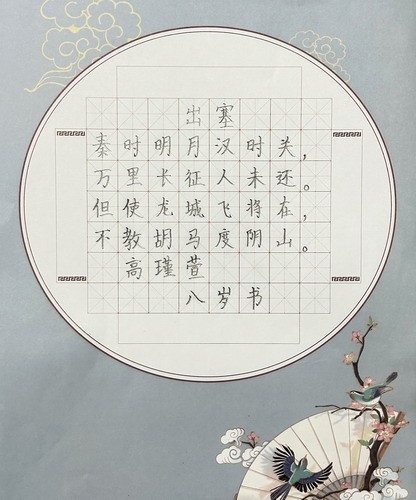 出塞
秦时明月汉时关，
万里长征人未还。
但使龙城飞将在，
不教胡马度阴山。
高瑾萱
八岁书